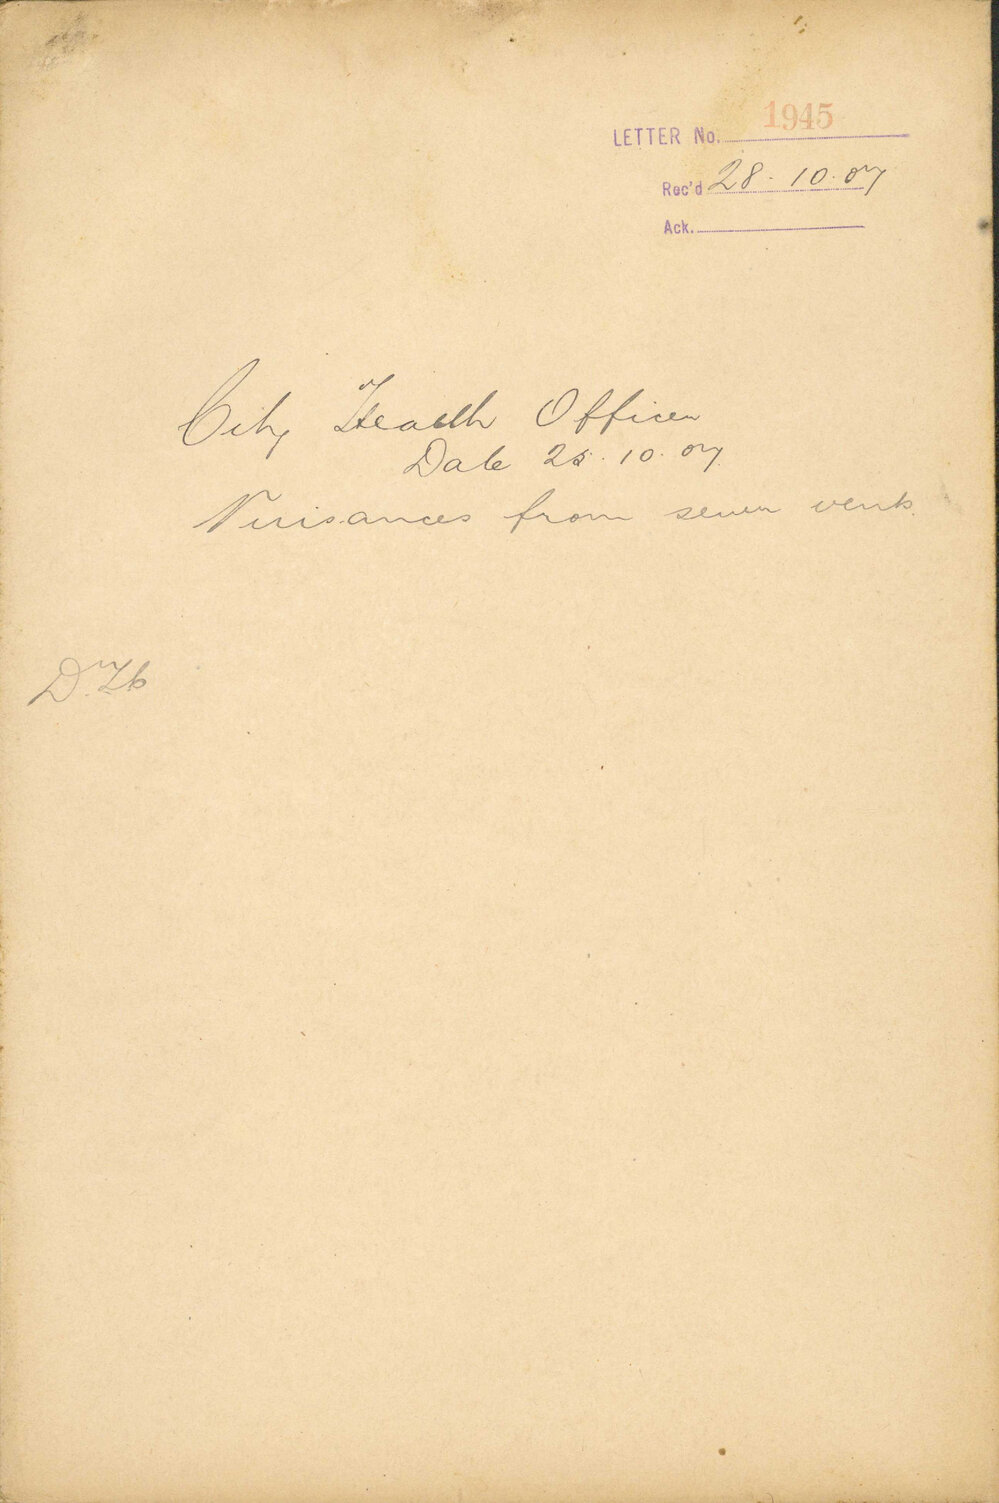 LETTER No. 1945
Rec'd 28. 10. 07
Ack.
City Health Officer
Date 25. 10. 07
Nuisances from sewer vents.